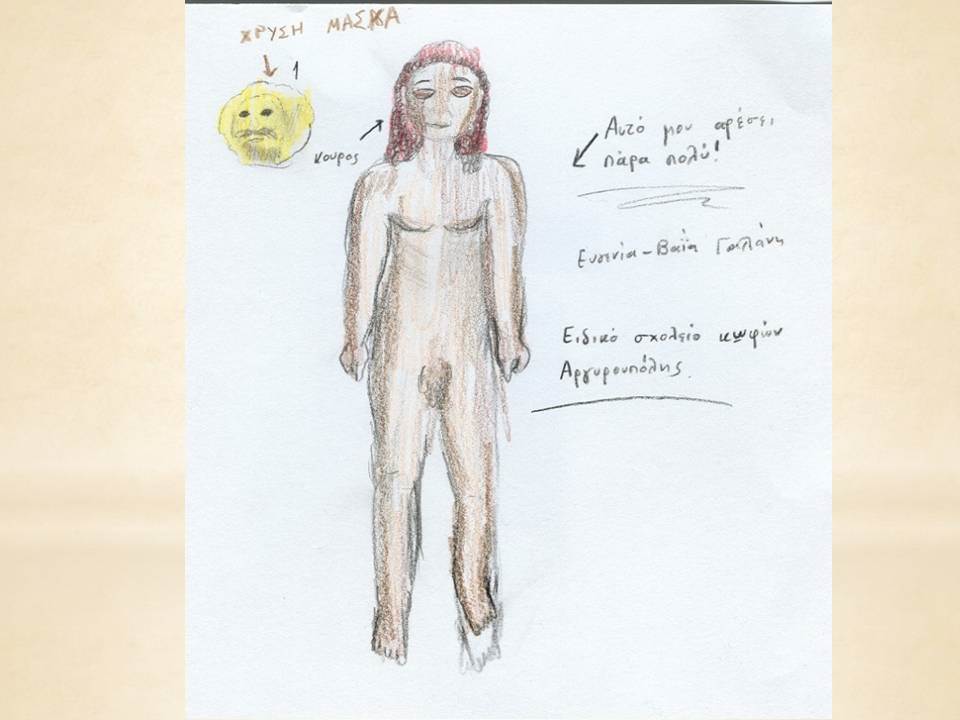 ΧΡΥΣΗ ΜΑΣΚΑ
1
κουρος
Αυτό μου αρέσει
πάρα πολύ!
Ευγενία-Βαϊα Γαλάνη
Ειδικό σχολείο κωφών
Αργυρουπόλης.